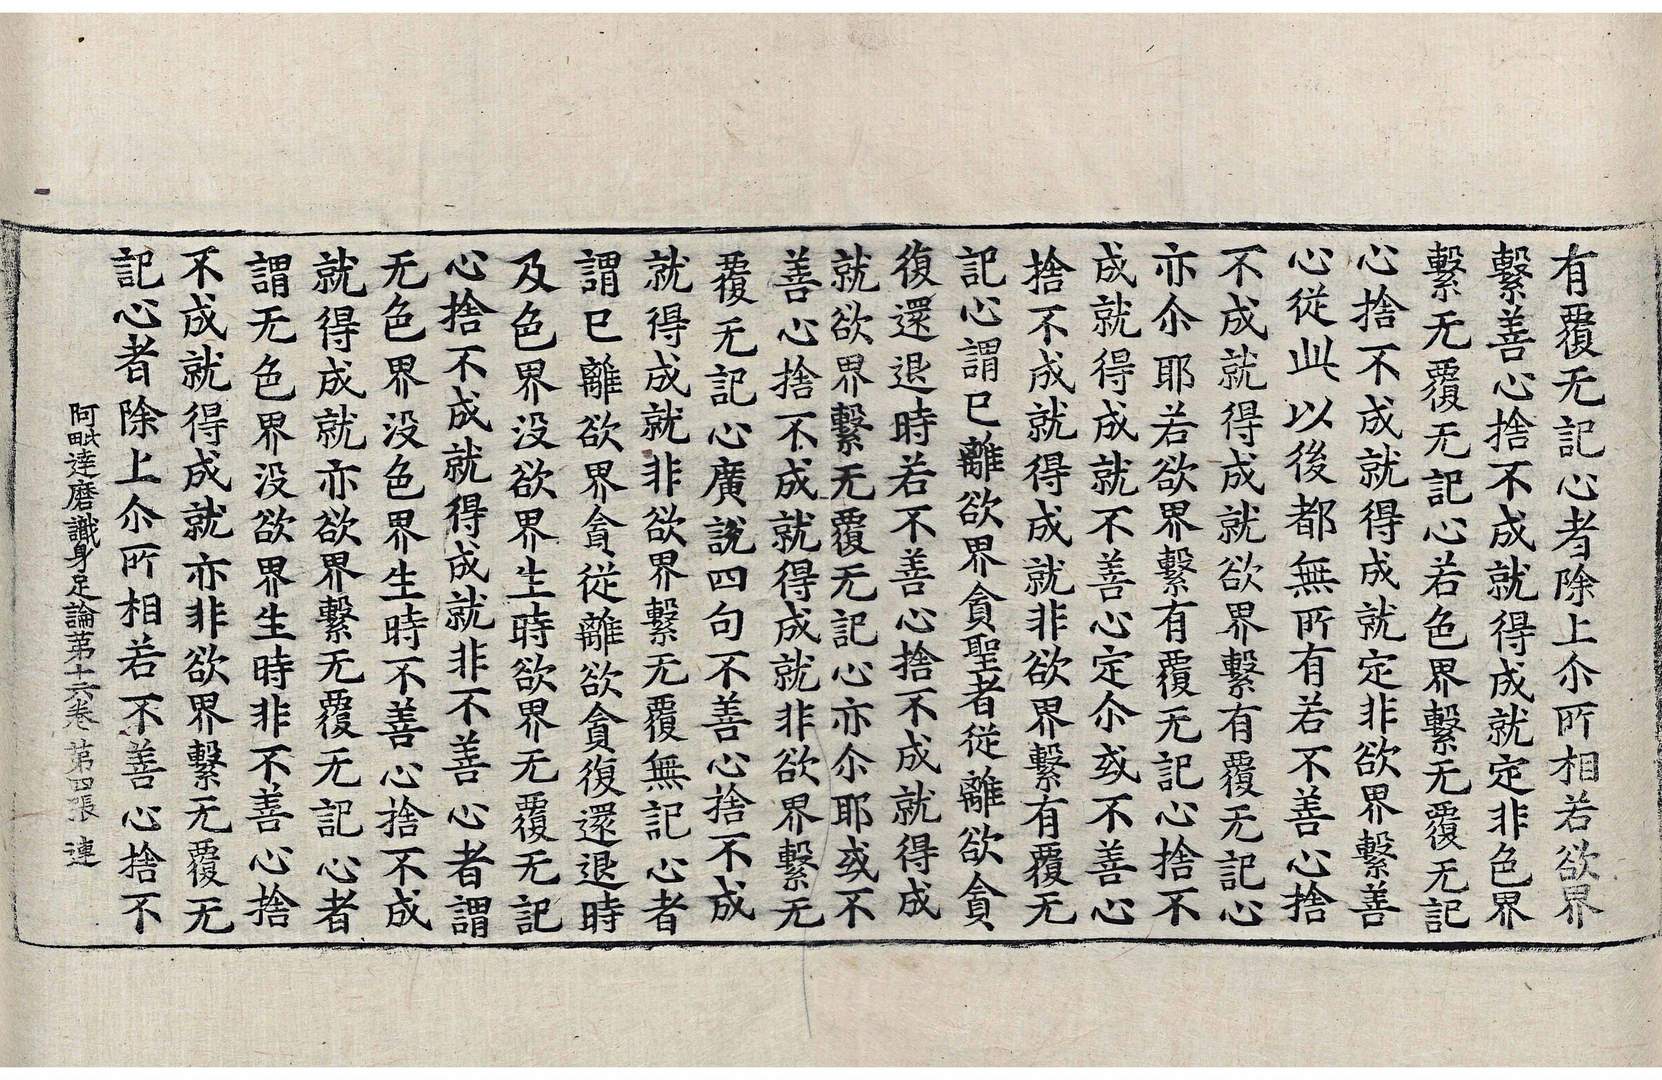 有覆无記心者除上尒所相若欲界
繫善心捨不成就得成就定非色界
繫无覆无記心若色界繫无覆无記
心捨不成就得成就定非欲界繫善
心從此以後都無所有若不善心捨
不成就得成就欲界繫有覆无記心
亦尒耶若欲界繫有覆无記心捨不
成就得成就不善心定尒或不善心
捨不成就得成就非欲界繫有覆无
記心謂已離欲界貪聖者從離欲貪
復還退時若不善心捨不成就得成
就欲界繫无覆无記心亦尒耶或不
善心捨不成就得成就非欲界繫无
覆无記心廣說四句不善心捨不成
就得成就非欲界繫无覆無記心者
謂已離欲界貪從離欲貪復還退時
及色界没欲界生時欲界无覆无記
心捨不成就得成就非不善心者謂
无色界没色界生時不善心捨不成
就得成就亦欲界繫无覆无記心者
謂无色界没欲界生時非不善心捨
不成就得成就亦非欲界繫无覆无
記心者除上尒所相若不善心捨不
阿毗達磨識身足論第十六卷 第四張 連